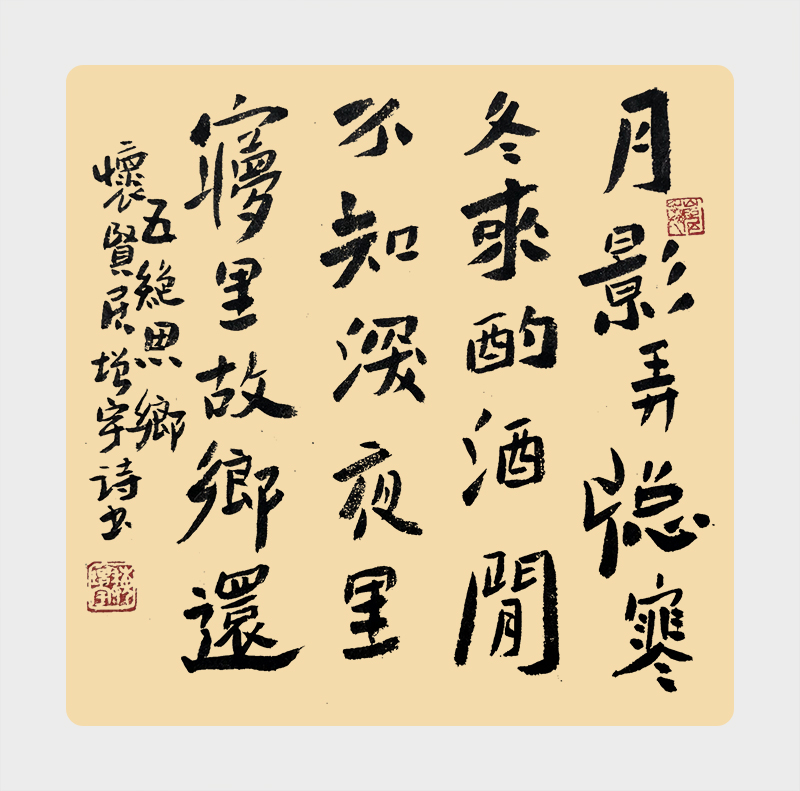 月影弄牕寒
冬來酌酒閒
不知深夜里
㝱里故鄉還
五絶思鄉
懷賢居增宇詩书